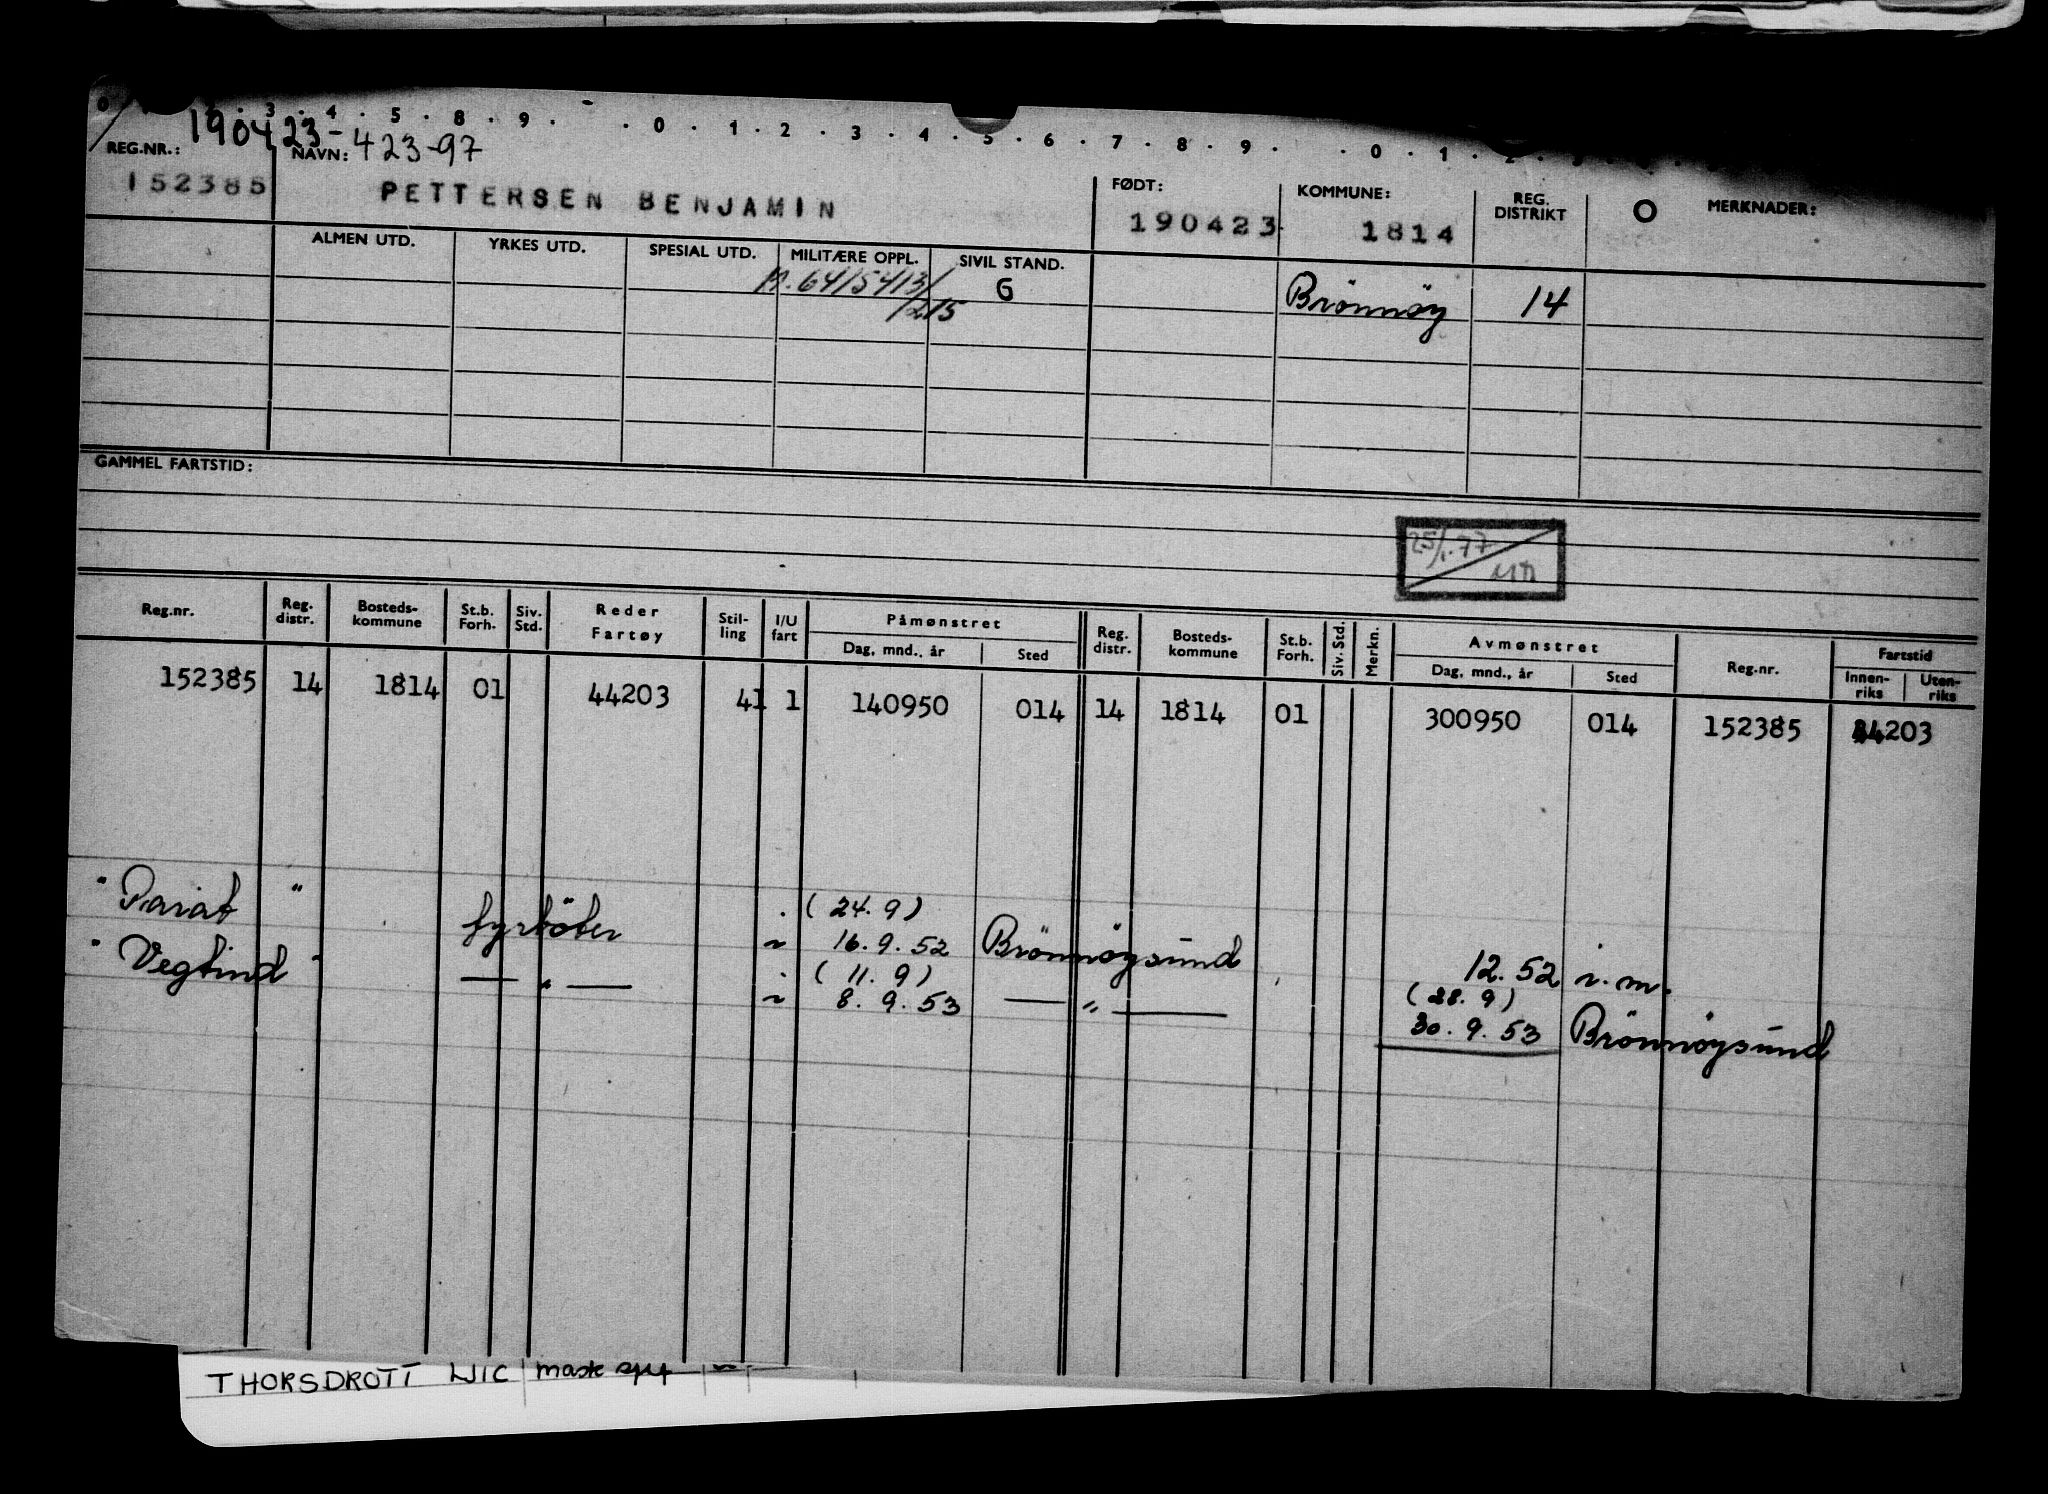 0 3 . 4 . 5 . 8 . 9 . . 0 . 1 . 2 . 3 . 4 . 5 . 6 . 7 . 8 . 9 . . 0 . 1 . 2
190423-
423-97
REG.NR.: NAVN: FØDT: KOMMUNE: REG. DISTRIKT O MERKNADER:
152385 PETTERSEN BENJAMIN 190423 1814
ALMEN UTD. YRKES UTD. SPESIAL UTD. MILITÆRE OPPL. SIVIL STAND.
6415413/ G Brönnöy 14
1215
GAMMEL FARTSTID:
25/1.77
Reg.nr. Reg. distr. Bosteds- kommune St.b. Forh. Siv. Std. Reder Fartøy Stil- ling I/U fart Påmønstret Reg. distr. Bosteds- kommune St.b. Forh. Siv. Std. Merkn. Avmønstret Reg.nr. Fartstid
Dag, mnd., år Sted Dag, mnd., år Sted Innen- riks Uten- riks
152385 14 1814 01 44203 41 1 140950 014 14 1814 01 300950 014 152385 44203
"Pariat" fyrböter (24.9)
16.9.52 Brönnöysund 12.52 i.m.
"Vegtind" — " — (11.9) (28.9)
8.9.53 — " — 30.9.53 Brönnöysund
THORSDROTT LJIC mask